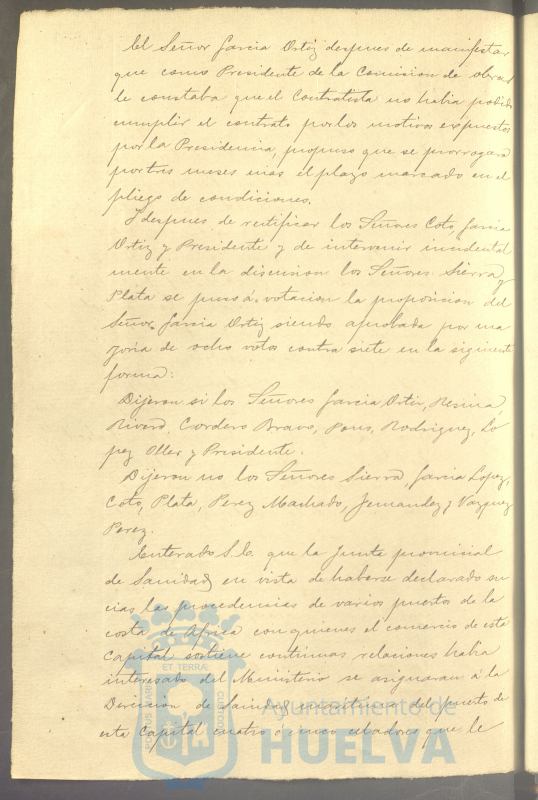 El Señor Garcia Ortiz despues de manifestar
que como Presidente de la Comision de obras
le constaba que el Contratista no habia podido
cumplir el contrato por los motivos expuestos
por la Presidencia, propuso que se prorrogara
por tres meses mas el plazo marcado en el
pliego de condiciones.
Y despues de rectificar los Señores Coto, Garcia
Ortiz y Presidente y de intervenir incidental
mente en la discusion los Señores Sierra y
Plata se puso á votacion la proposicion del
Señor Garcia Ortiz siendo aprobada por ma
yoria de ocho votos contra siete en la siguiente
forma:
Dijeron si los Señores Garcia Ortiz, Resina,
Rivero, Cordero Bravo, Pons, Rodriguez, Lo
pez Oller y Presidente.
Dijeron no los Señores Sierra, Garcia Lopez,
Coto, Plata, Perez Machado, Fernandez y Vazquez
Perez.
Enterado S.E. que la Junta provincial
de Sanidad en vista de haberse declarado su
cias las procedencias de varios puertos de la
costa de Africa con quienes el comercio de esta
Capital sostiene continuas relaciones habia
interesado del Ministerio se asignaran á la
Direccion de Sanidad maritima del puerto de
esta Capital cuatro ó cinco celadores que le
ET TERRÆ
PORTUS MARIS
CUSTODIA
Ayuntamiento de
HUELVA